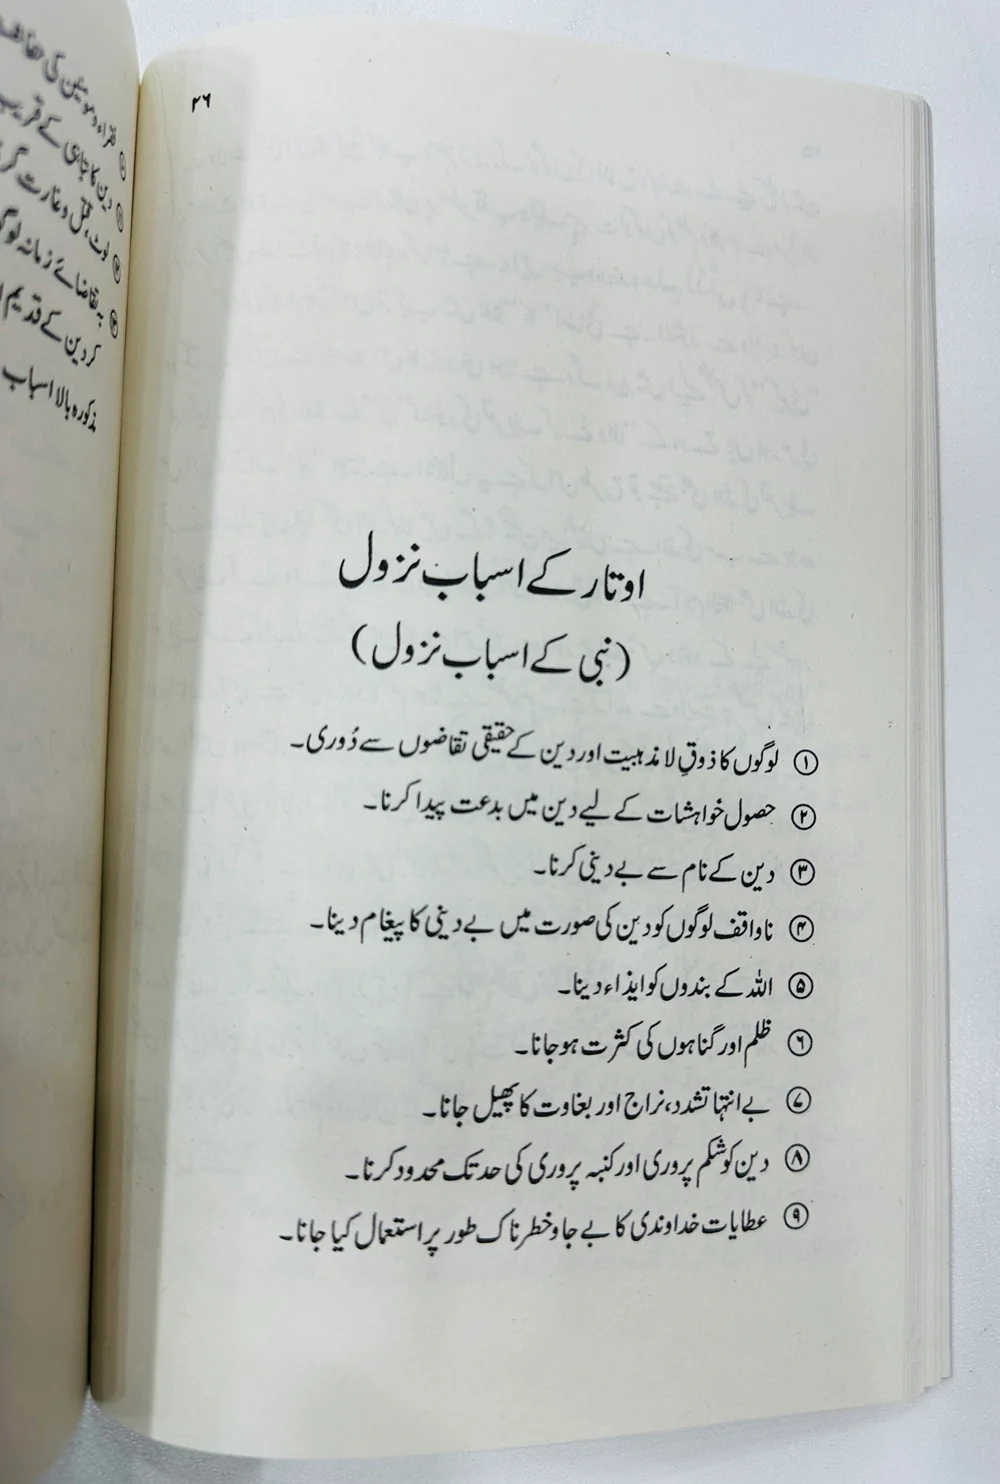 ۲۶
اوتار کے اسباب نزول
(نبی کے اسباب نزول)
① لوگوں کا ذوقِ لا مذہبیت اور دین کے حقیقی تقاضوں سے دُوری۔
② حصول خواہشات کے لیے دین میں بدعت پیدا کرنا۔
③ دین کے نام سے بے دینی کرنا۔
④ ناواقف لوگوں کو دین کی صورت میں بے دینی کا پیغام دینا۔
⑤ اللہ کے بندوں کو ایذاء دینا۔
⑥ ظلم اور گناہوں کی کثرت ہو جانا۔
⑦ بے انتہا تشدد، نراج اور بغاوت کا پھیل جانا۔
⑧ دین کو شکم پروری اور کنبہ پروری کی حد تک محدود کرنا۔
⑨ عطایات خداوندی کا بے جا و خطرناک طور پر استعمال کیا جانا۔
دین کا تباہی کے قریب
لوٹ، قتل و غارت
بہ تقاضائے زمانہ
کر دین کے قدیم
مذکورہ بالا اسباب